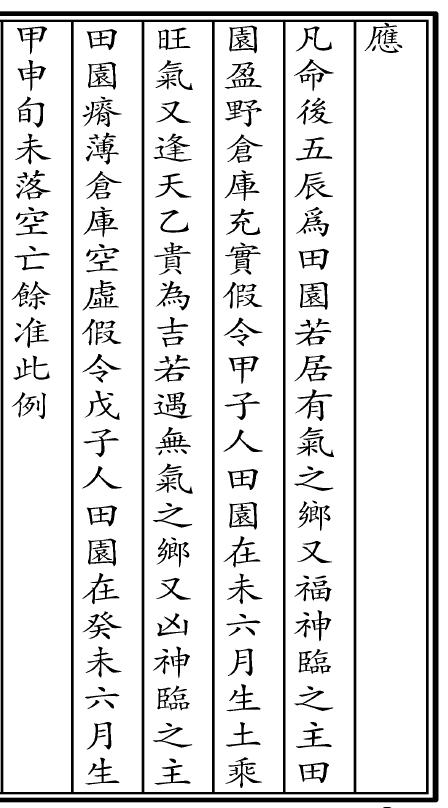 應
凡命後五辰爲田園若居有氣之鄉又福神臨之主田
園盈野倉庫充實假令甲子人田園在未六月生土乘
旺氣又逢天乙貴為吉若遇無氣之鄉又凶神臨之主
田園瘠薄倉庫空虛假令戊子人田園在癸未六月生
甲申旬未落空亡餘准此例